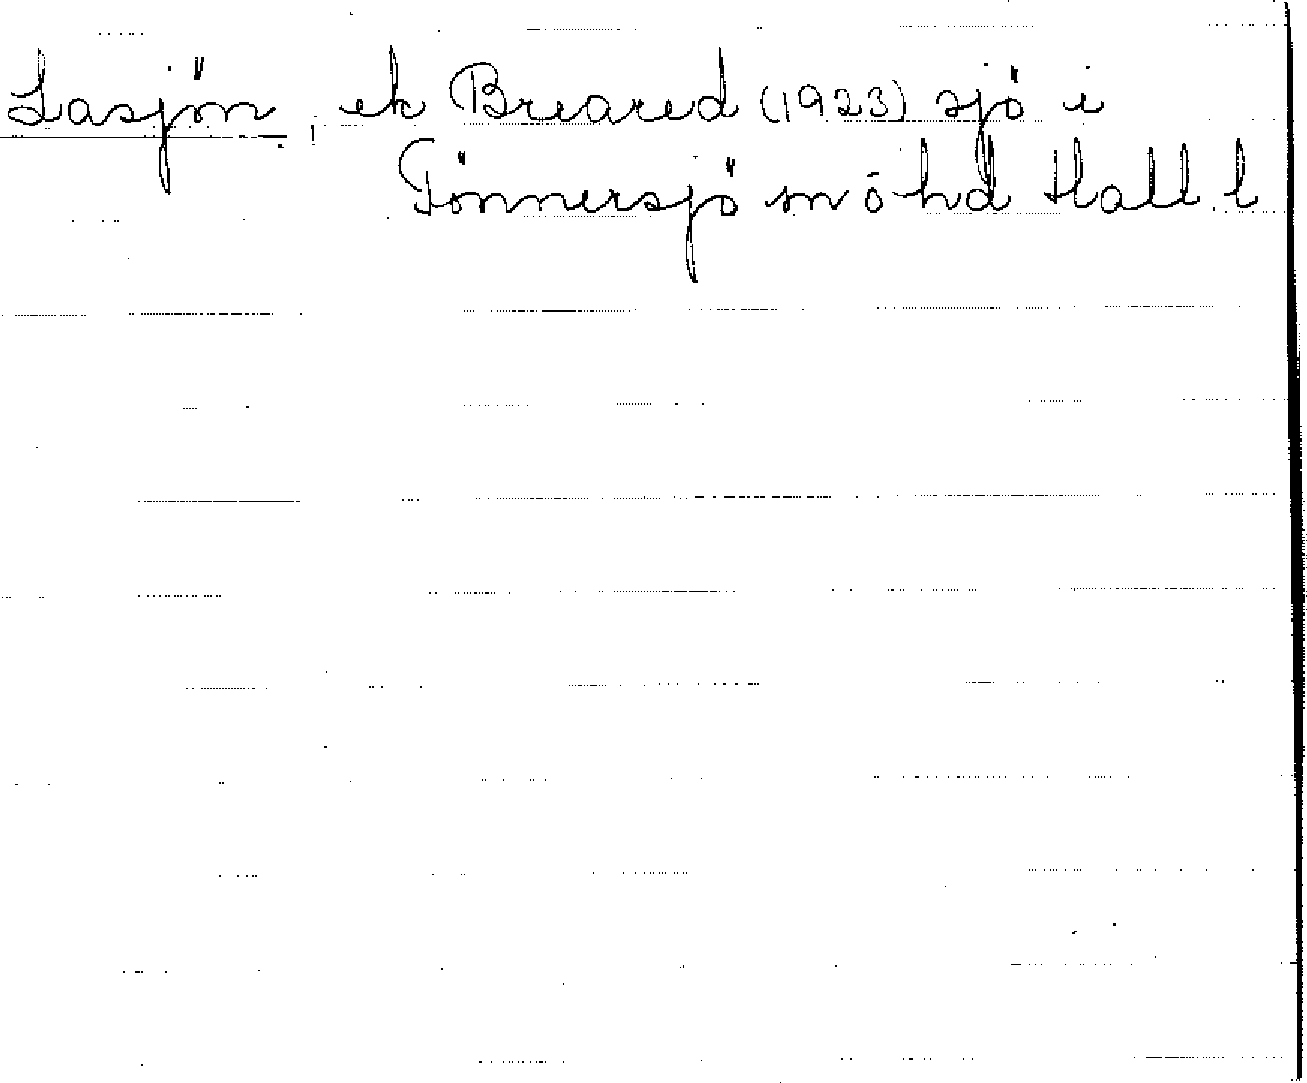 Lasjön, ek Breared (1923) sjö i
Tönnersjö sn ö hd Hall. l